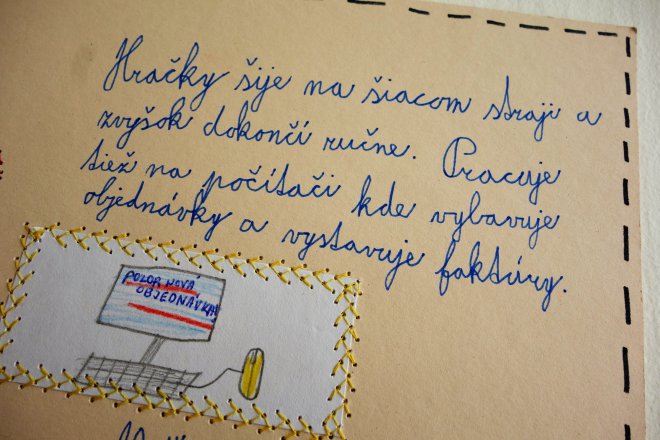 Hračky šije na šiacom straji a
zvyšok dokončí ručne. Pracuje
tiež na počítači kde vybavuje
objednávky a vystavuje faktúry.
POZOR NOVÁ
OBJEDNÁVKA!